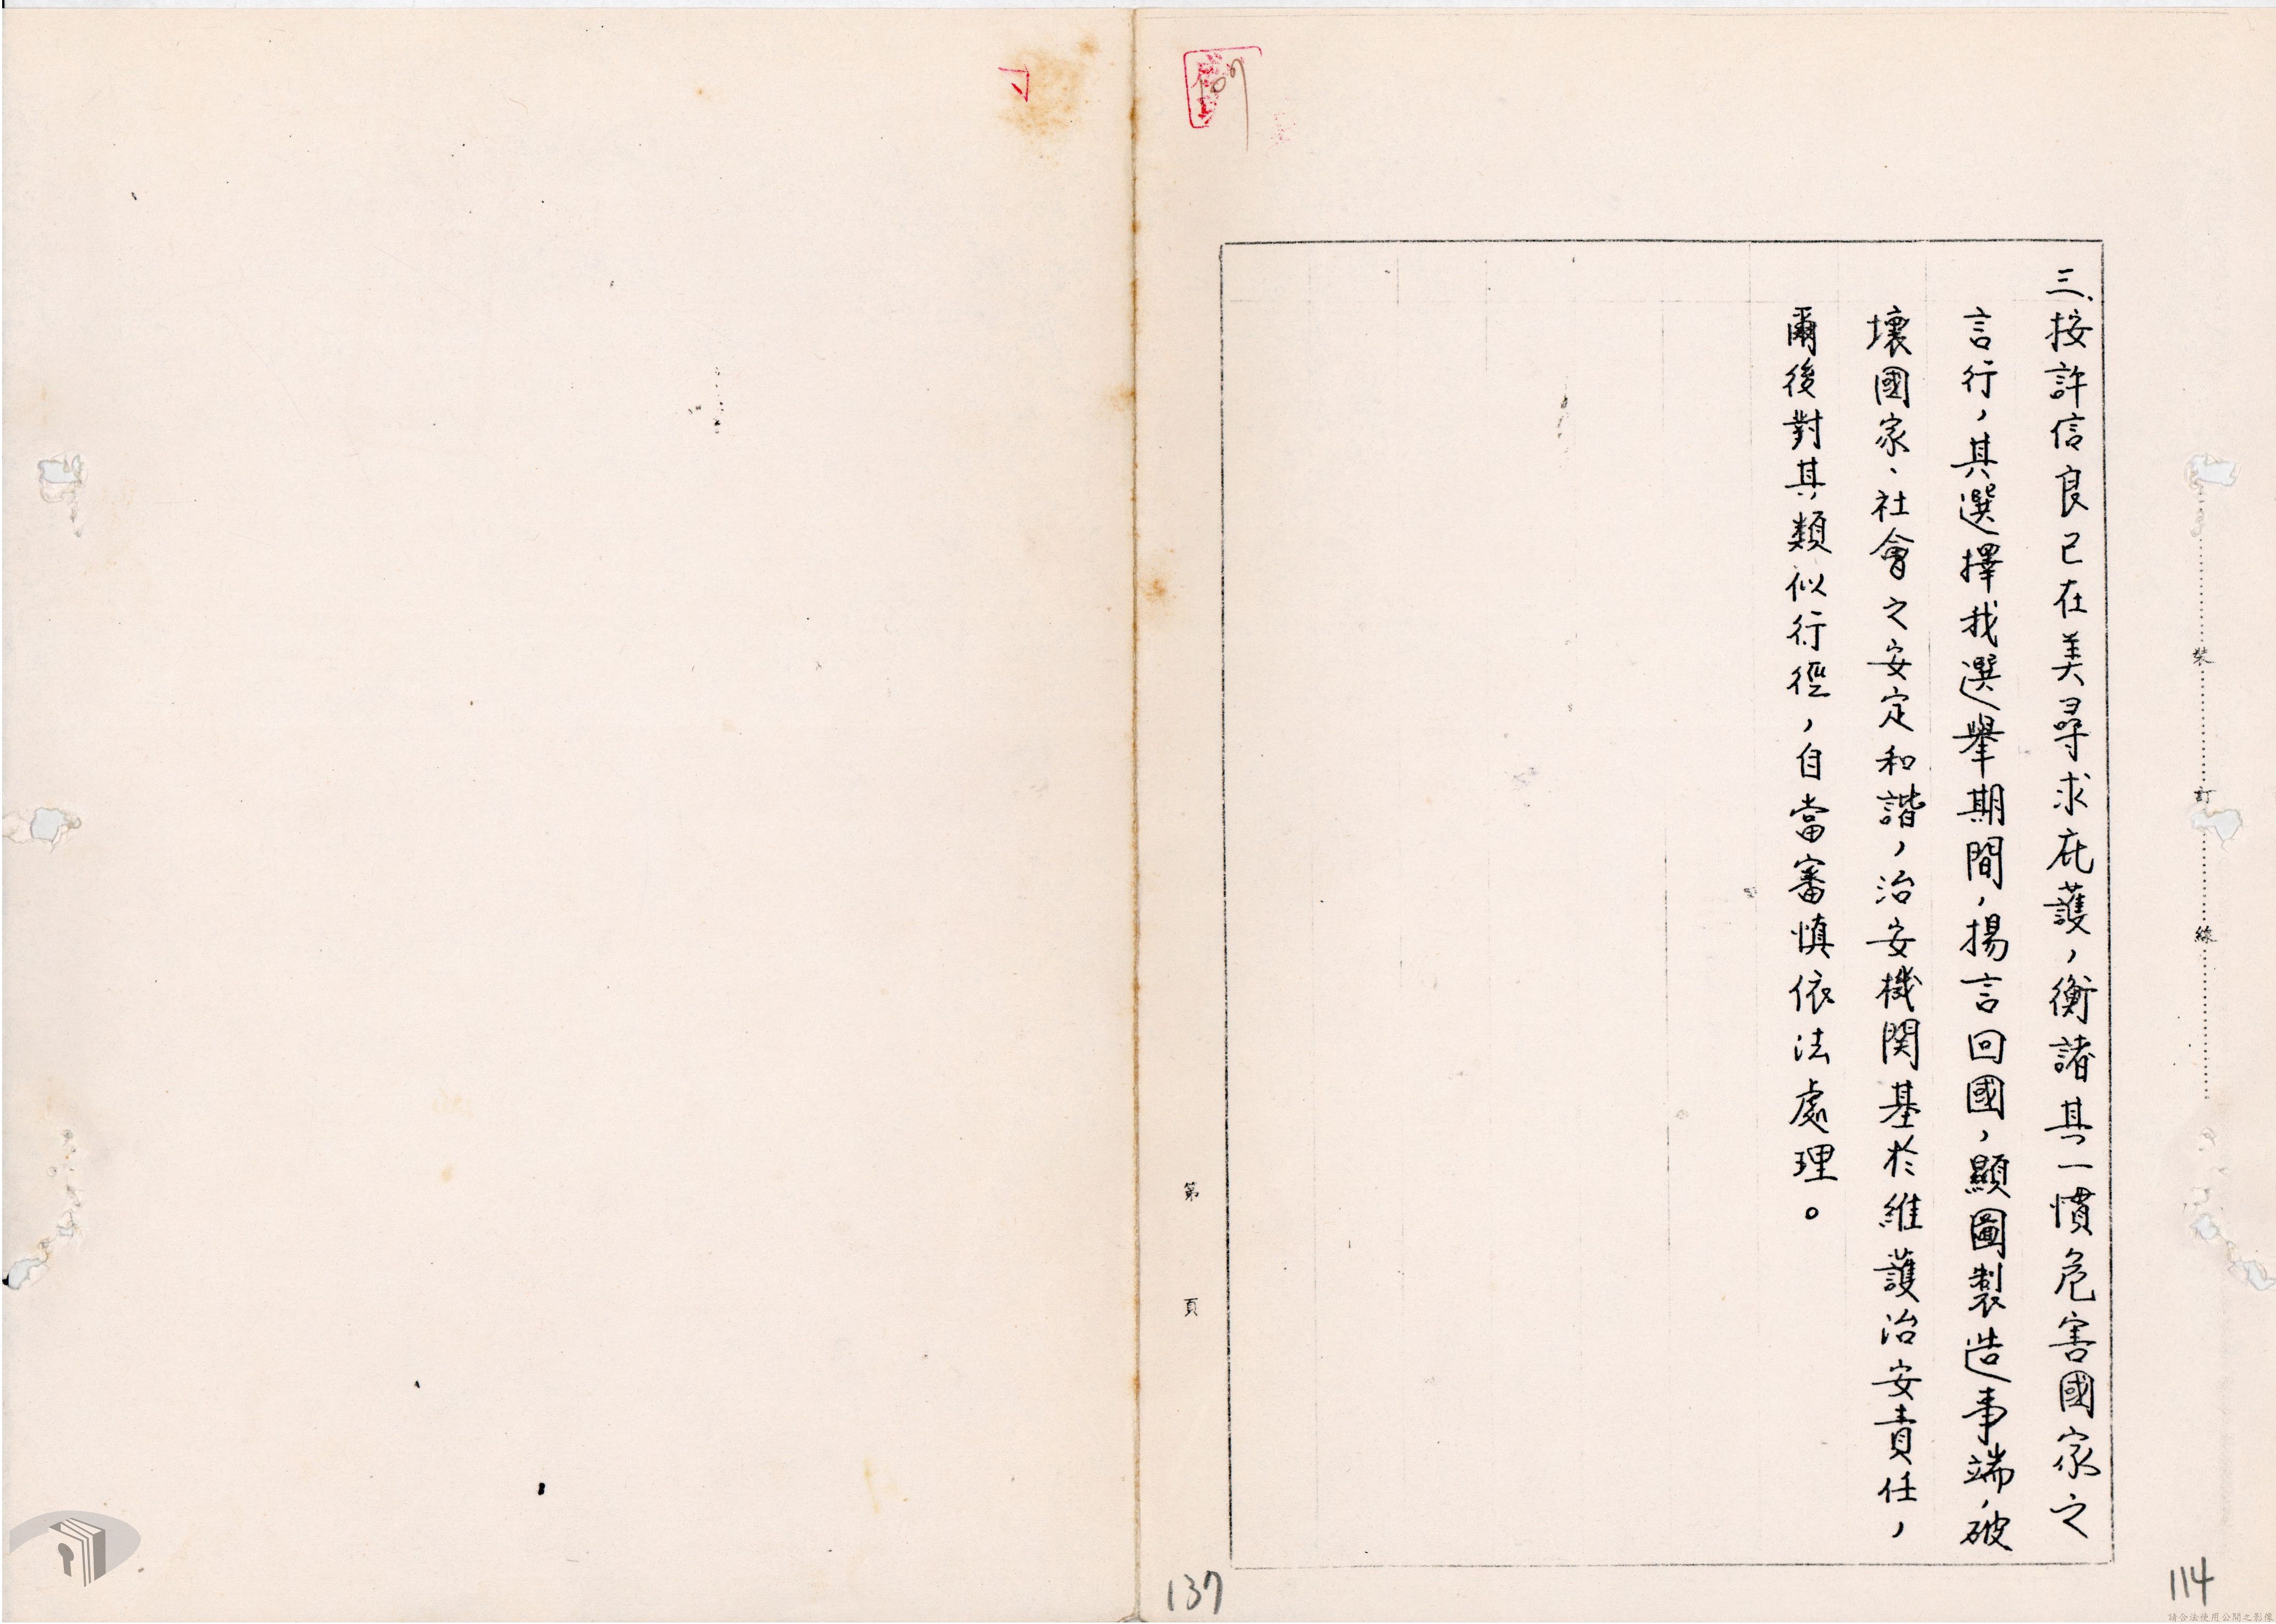 三、按許信良已在美尋求庇護，衡諸其一慣危害國家之
言行，其選擇我選舉期間，揚言回國，顯圖製造事端，破
壞國家、社會之安定和諧，治安機関基於維護治安責任，
爾後對其類似行徑，自當審慎依法處理。
裝
訂
線
第
頁
107
137
114
請合法使用公開之影像